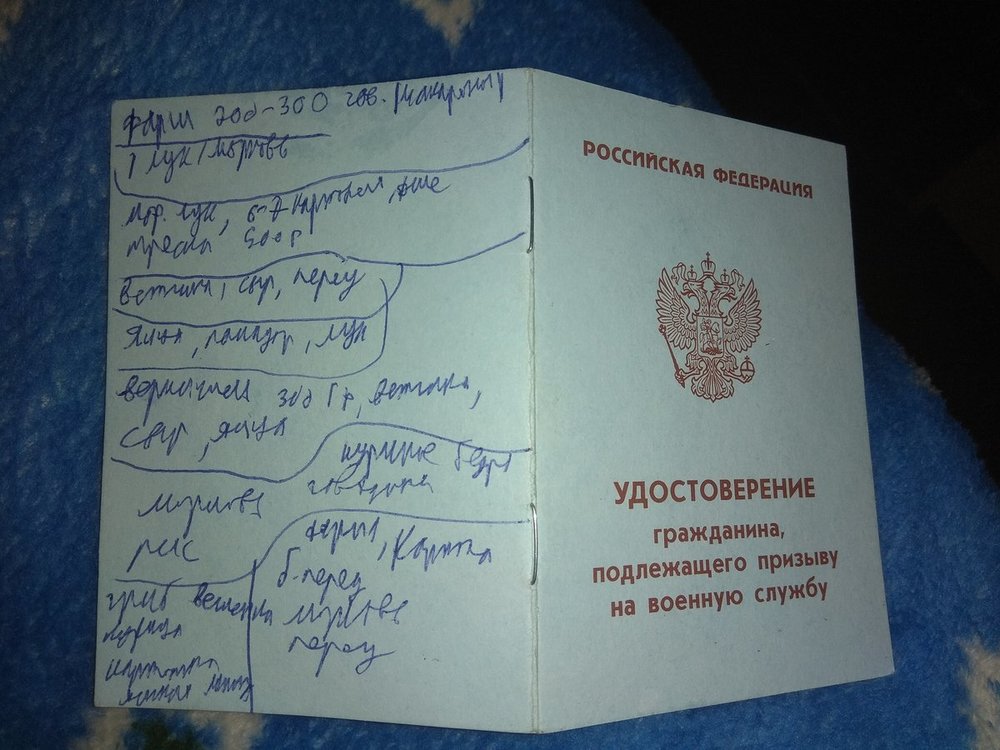 Фарш 200-300 гов. (макароны)
1 лук/морковь
лук, 6-7 картофеля
500 г
ветчина, сыр, перец
Яйца, помидор, лук
вермишель 300 гр, ветчина,
сыр, яйца
куриные бедра
говядина
морковь
рис
фарш,
б. перец
морковь
перец
гриб вешенка
курица
картошка
РОССИЙСКАЯ ФЕДЕРАЦИЯ
УДОСТОВЕРЕНИЕ
гражданина,
подлежащего призыву
на военную службу